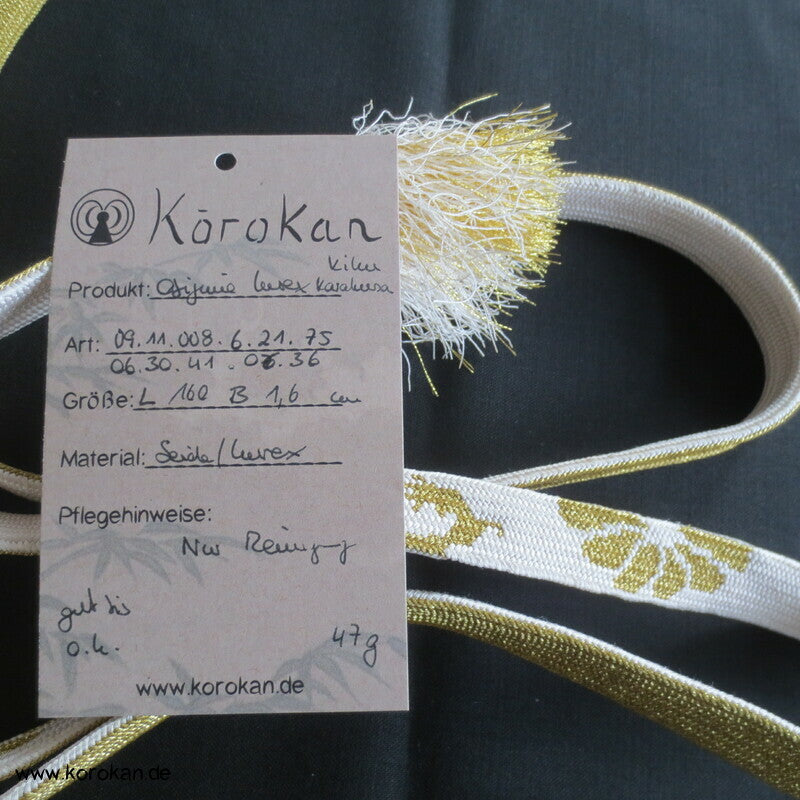 Kōrokan
Kiku
Produkt: Obijime lurex Karakusa
Art: 09.11.008.6.21.75
06.30.41.06.36
Größe: L 160 B 1,6 cm
Material: Seide/lurex
Pflegehinweise:
Nur Reinigung
gut bis
o.k.
47g
www.korokan.de
www.korokan.de